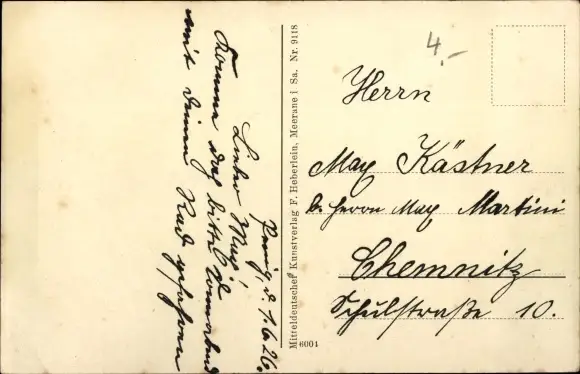 Penig, d. 1.6.26.
Lieber Max!
Komme doch bitte Sonnabend
mit Deinem Rad gefahren
Mitteldeutscher Kunstverlag F. Heberlein, Meerane i Sa. Nr. 9118
6004
4.-
Herrn
Max Kästner
b. Herrn Max Martini
Chemnitz
Schulstraße 10.